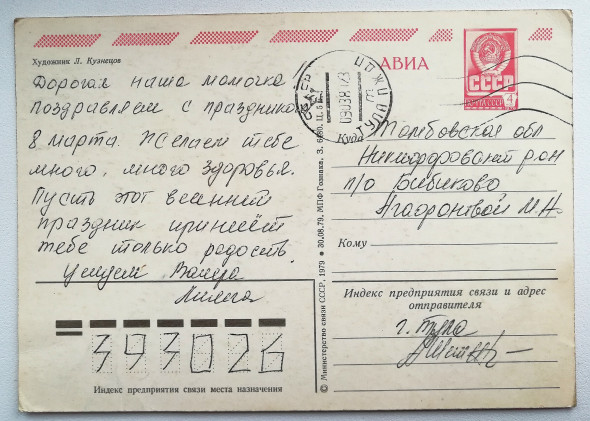 Художник Л. Кузнецов
Дорогая наша мамочка
поздравляем с праздником
8 марта. Желаем тебе
много, много здоровья.
Пусть этот весенний
праздник принесёт
тебе только радость.
целуем Валера
393026
Индекс предприятия связи места назначения
© Министерство связи СССР, 1979 ● 30.08.79. МПФ Гознака. З.
АВИА
СССР
ПОЧТА СССР
4
Куда Тамбовская обл
Никифоровский р-он
п/о Бибиково
Агафоновой М.А.
Кому
Индекс предприятия связи и адрес
отправителя
г. Тула